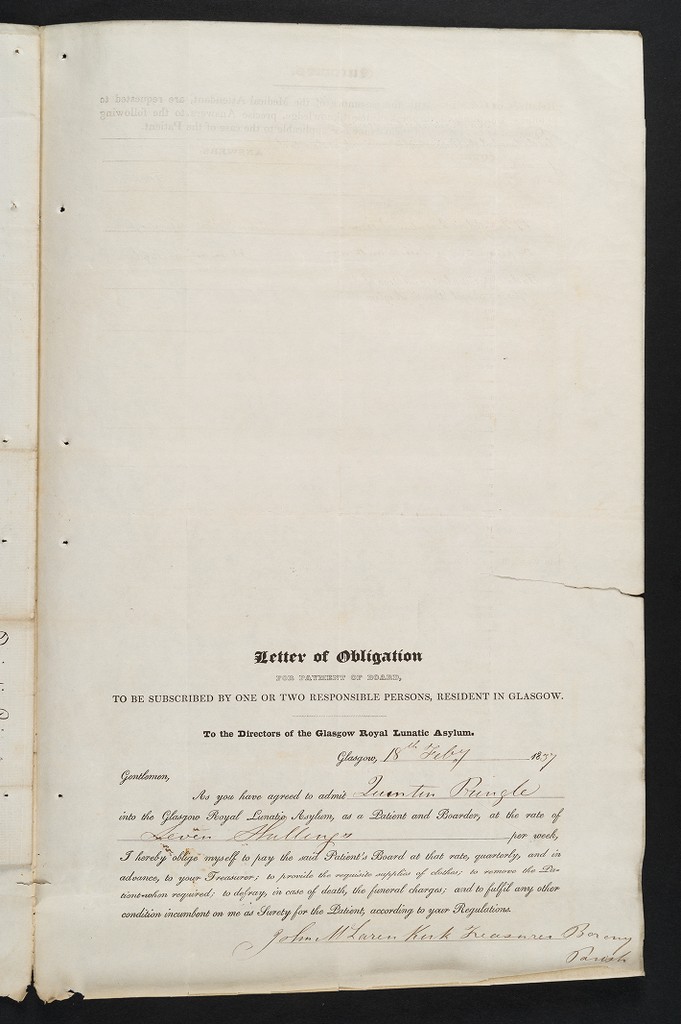 Letter of Obligation
FOR PAYMENT OF BOARD,
TO BE SUBSCRIBED BY ONE OR TWO RESPONSIBLE PERSONS, RESIDENT IN GLASGOW.
To the Directors of the Glasgow Royal Lunatic Asylum.
Glasgow, 18th Feby 1837
Gentlemen,
As you have agreed to admit Quintin Pringle
into the Glasgow Royal Lunatic Asylum, as a Patient and Boarder, at the rate of
Seven Shillings per week,
I hereby oblige myself to pay the said Patient's Board at that rate, quarterly, and in
advance, to your Treasurer; to provide the requisite supplies of clothes; to remove the Pa-
tient when required; to defray, in case of death, the funeral charges; and to fulfil any other
condition incumbent on me as Surety for the Patient, according to your Regulations.
John McLaren Kirk Treasurer Barony
Parish